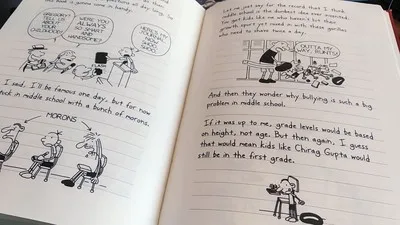 TELL US
YOUR
CHILDHOOD!
WERE
YOU
ALWAYS
SO SMART
AND
HANDSOME?
FLASH
I said, I'll be famous one day, but for now
stuck in middle school with a bunch of morons.
MORONS
Let me just say for the record that I think
middle school is the dumbest idea ever invented.
You got kids like me who haven't hit their
growth spurt yet mixed in with these gorillas
who need to shave twice a day.
OUTTA MY
WAY, RUNTS!
And then they wonder why bullying is such a big
problem in middle school.
If it was up to me, grade levels would be based
on height, not age. But then again, I guess
that would mean kids like Chirag Gupta would
still be in the first grade.